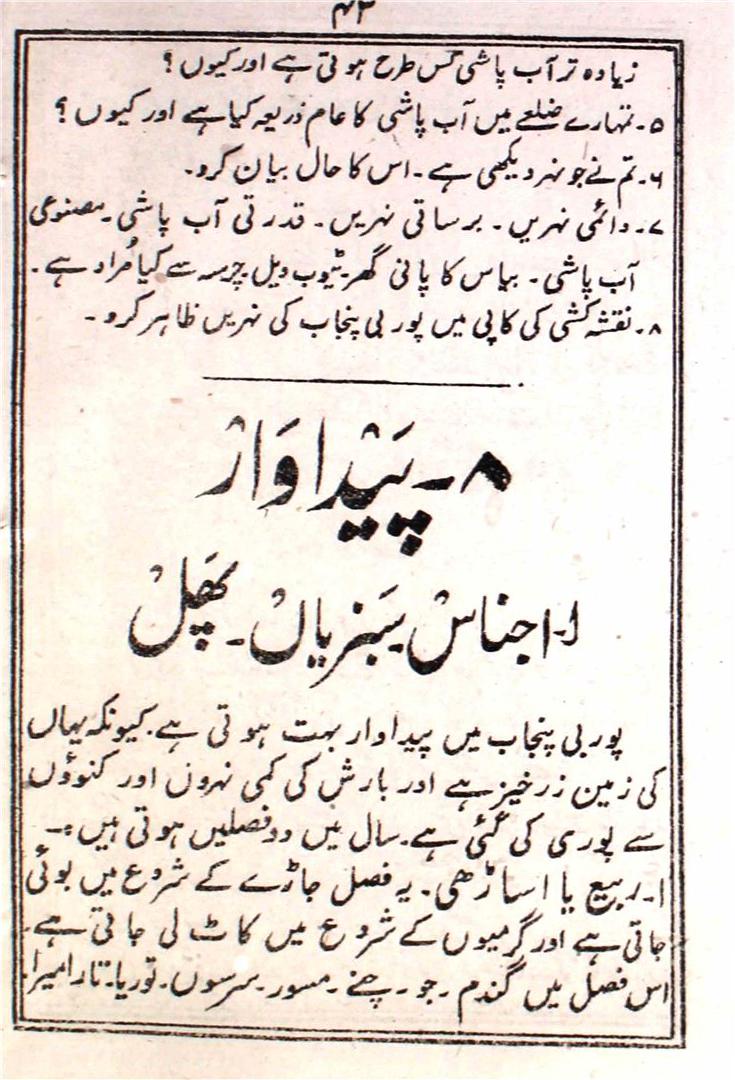 ۴۳
زیادہ تر آب پاشی کس طرح ہوتی ہے اور کیوں؟
۵۔ تمہارے ضلعے میں آب پاشی کا عام ذریعہ کیا ہے اور کیوں؟
۶۔ تم نے جو نہر دیکھی ہے۔ اس کا حال بیان کرو۔
۷۔ دائمی نہریں۔ برساتی نہریں۔ قدرتی آب پاشی۔ مصنوعی
آب پاشی۔ بیاس کا پانی گھر۔ ٹیوب ویل۔ چرسہ سے کیا مُراد ہے۔
۸۔ نقشہ کشی کی کاپی میں پوربی پنجاب کی نہریں ظاہر کرو۔
۸۔ پَیداوَار
۱۔ اجناس۔ سَبزیاں۔ پھَل
پوربی پنجاب میں پیداوار بہت ہوتی ہے۔ کیونکہ یہاں
کی زمین زرخیز ہے اور بارش کی کمی نہروں اور کنوؤں
سے پوری کی گئی ہے۔ سال میں دو فصلیں ہوتی ہیں:۔
۱۔ ربیع یا اساڑھی۔ یہ فصل جاڑے کے شروع میں بوئی
جاتی ہے اور گرمیوں کے شروع میں کاٹ لی جاتی ہے۔
اس فصل میں گندم۔ جو۔ چنے۔ مسور۔ سرسوں۔ توریا۔ تارا میرا۔